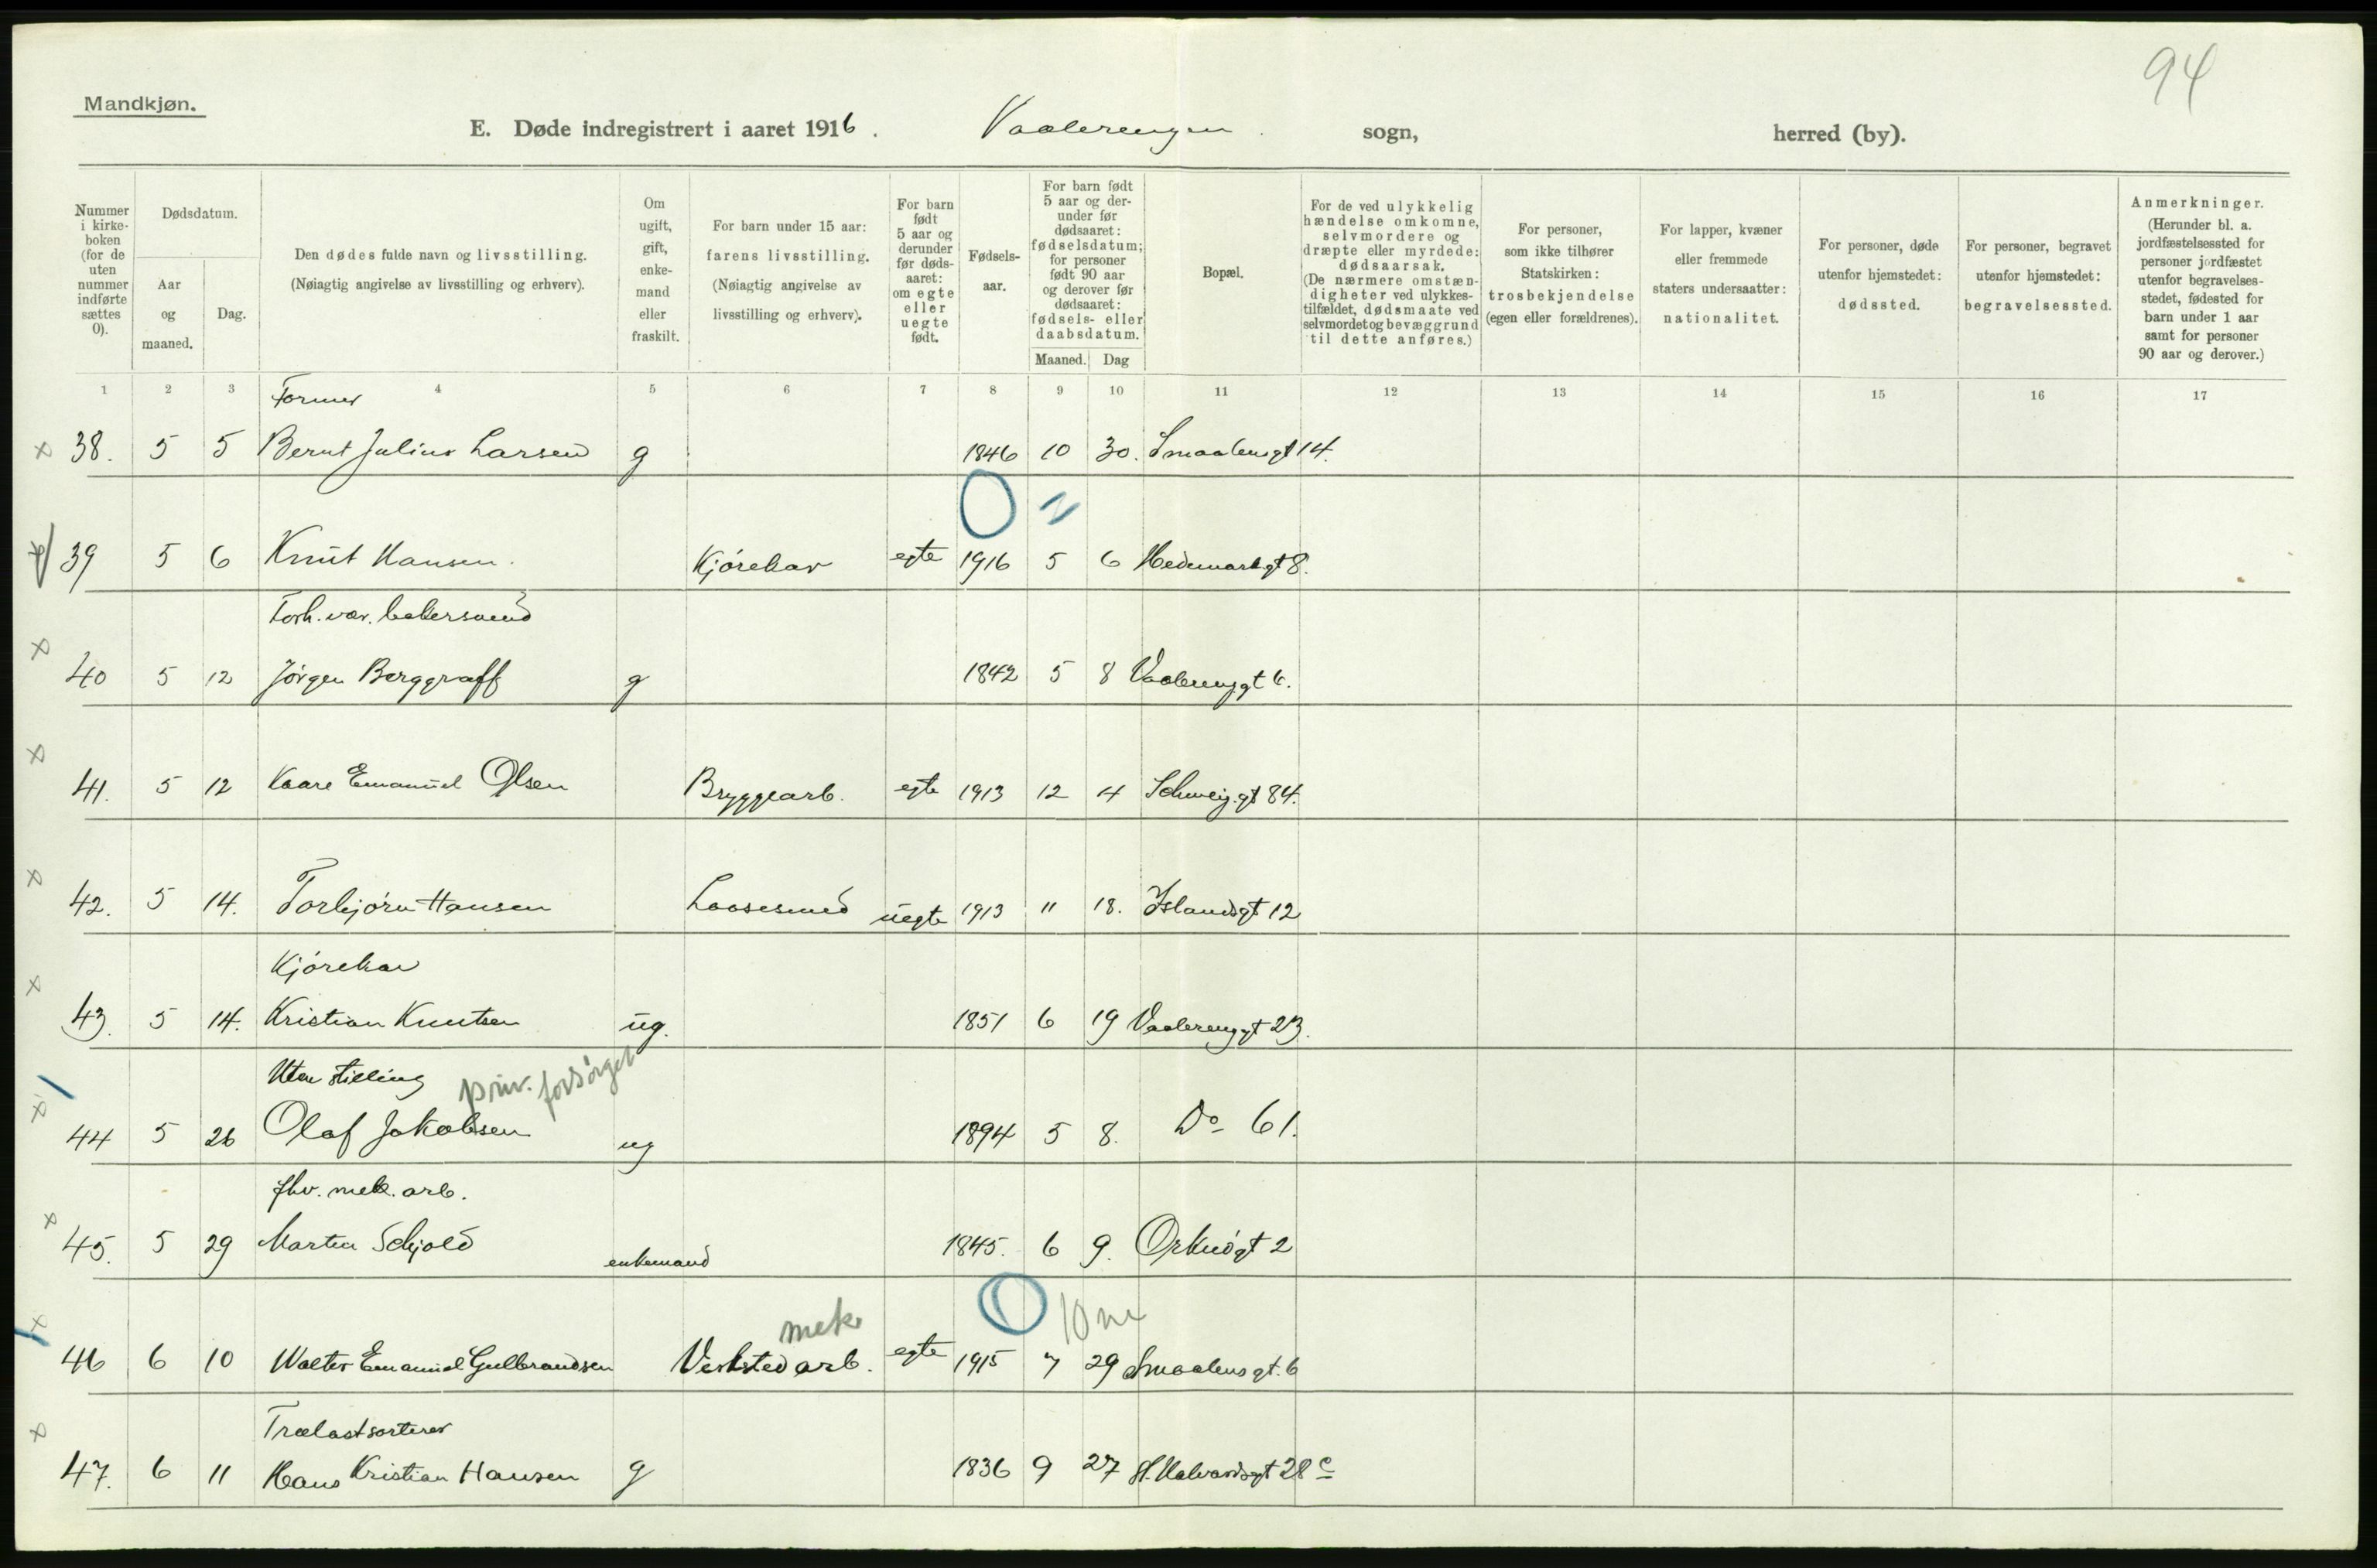 94
Mandkjøn.
E. Døde indregistrert i aaret 1916. Vaalerengen sogn, herred (by).
Nummer i kirkeboken (for de uten nummer indførte sættes 0).
Dødsdatum.
Aar og maaned.
Dag.
Den dødes fulde navn og livsstilling.
(Nøiagtig angivelse av livsstilling og erhverv).
Om ugift, gift, enkemand eller fraskilt.
For barn under 15 aar: farens livsstilling.
(Nøiagtig angivelse av livsstilling og erhverv).
For barn født 5 aar og derunder før dødsaaret: om egte eller uegte født.
Fødselsaar.
For barn født 5 aar og derunder før dødsaaret: fødselsdatum; for personer født 90 aar og derover før dødsaaret: fødsels- eller daabsdatum.
Maaned. Dag
Bopæl.
For de ved ulykkelig hændelse omkomne, selvmordere og dræpte eller myrdede: dødsaarsak.
(De nærmere omstændigheter ved ulykkestilfældet, dødsmaate ved selvmordet og bevæggrund til dette anføres.)
For personer, som ikke tilhører Statskirken: trosbekjendelse (egen eller forældrenes).
For lapper, kvæner eller fremmede staters undersaatter: nationalitet.
For personer, døde utenfor hjemstedet: dødssted.
For personer, begravet utenfor hjemstedet: begravelsessted.
Anmerkninger.
(Herunder bl. a. jordfæstelsessted for personer jordfæstet utenfor begravelsesstedet, fødested for barn under 1 aar samt for personer 90 aar og derover.)
1 2 3 4 5 6 7 8 9 10 11 12 13 14 15 16 17
Former
38. 5 5 Bernt Julius Larsen g 1846 10 30. Smaalensgt 14.
0
39 5 6 Knut Hansen. Kjørekar egte 1916 5 6 Hedemarkgt 8.
Forh. vær. bakersvend
40 5 12 Jørgen Berggraff g 1842 5 8 Vaalerenggt 6.
41. 5 12 Kaare Emanuel Olsen Bryggearb. egte 1913 12 4 Schweig.gt 84.
42. 5 14. Torbjørn Hansen Laasesmed uegte 1913 11 18. Islandsgt 12
Kjørekar
43. 5 14. Kristian Knutsen ug. 1851 6 19 Vaalerenggt 23.
Uten stilling priv. forsørget
44 5 26 Olaf Jakobsen ug 1894 5 8. Do 61.
fhv. mek. arb.
45. 5 29 Martin Schjold enkemand 1845. 6 9. Orknøgt 2
mek. 0 10 m
46 6 10 Walter Emanuel Gulbrandsen Verksted arb. egte 1915 7 29 Smaalensgt. 6
Trælastsorterer
47. 6 11 Hans Kristian Hansen g 1836 9 27 H. Halvardsgt 28 c